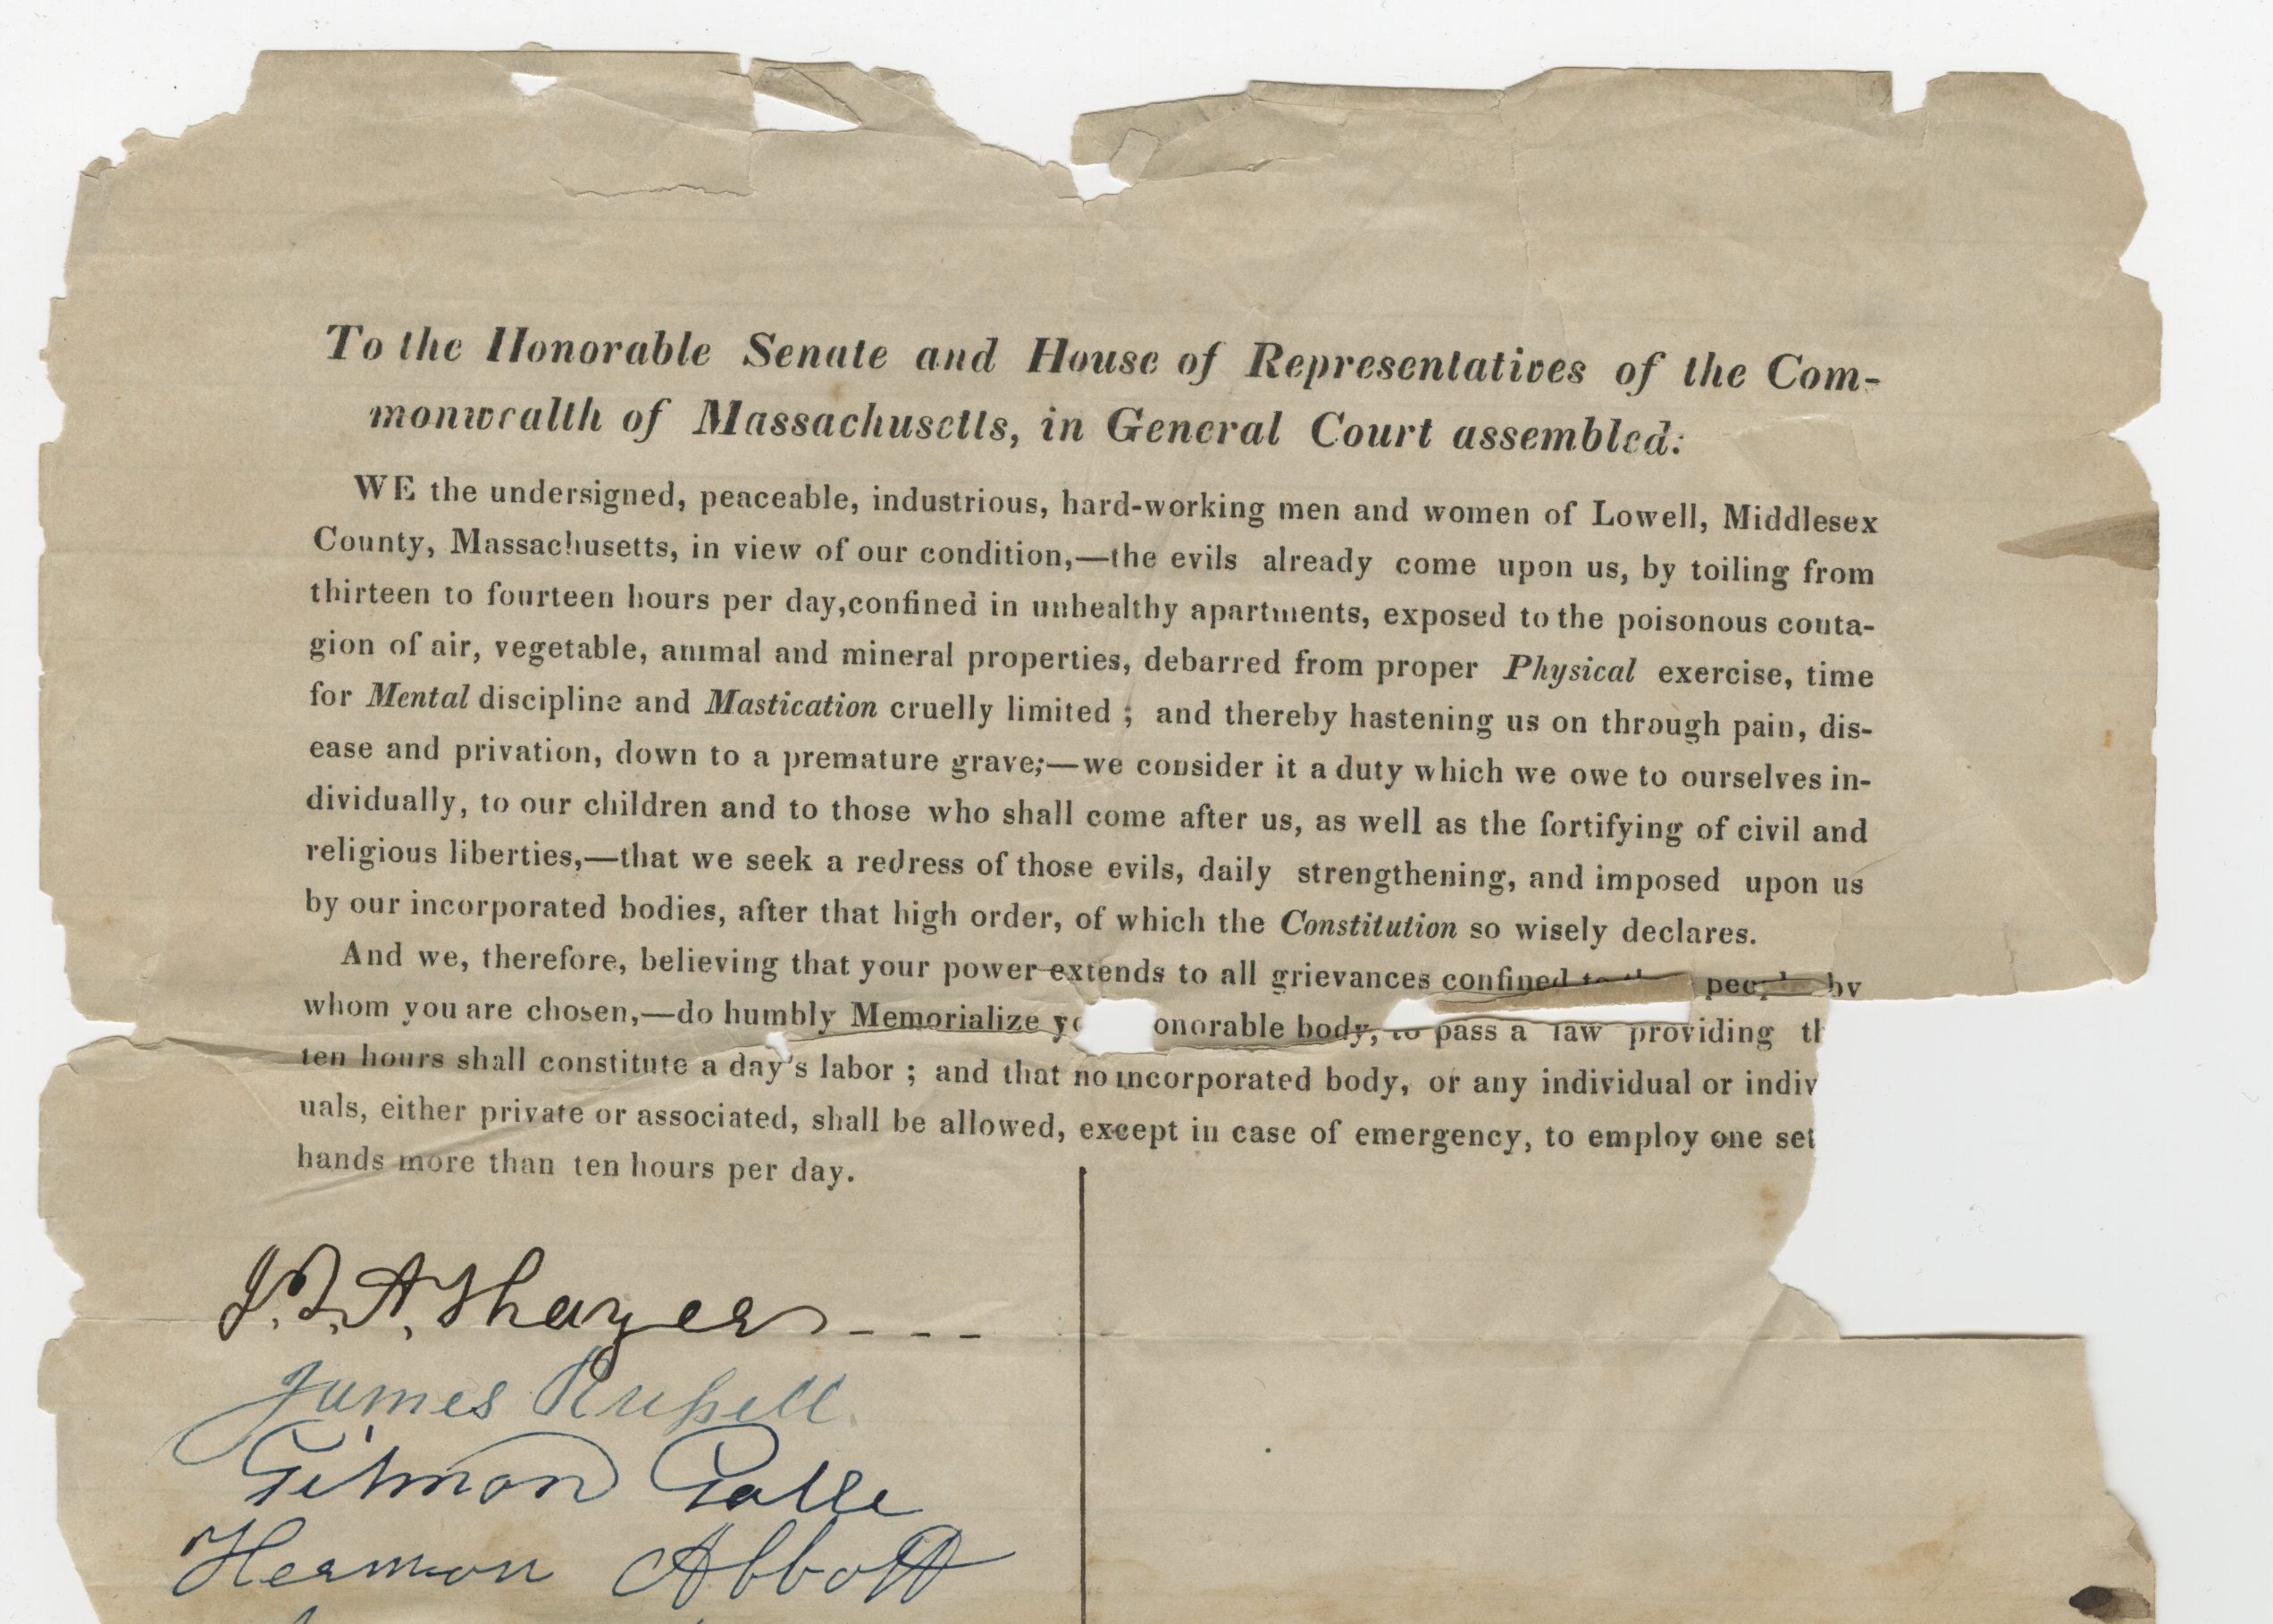 To the Honorable Senate and House of Representatives of the Com-
monwealth of Massachusetts, in General Court assembled:
WE the undersigned, peaceable, industrious, hard-working men and women of Lowell, Middlesex
County, Massachusetts, in view of our condition,—the evils already come upon us, by toiling from
thirteen to fourteen hours per day,confined in unhealthy apartments, exposed to the poisonous conta-
gion of air, vegetable, animal and mineral properties, debarred from proper Physical exercise, time
for Mental discipline and Mastication cruelly limited ; and thereby hastening us on through pain, dis-
ease and privation, down to a premature grave;—we consider it a duty which we owe to ourselves in-
dividually, to our children and to those who shall come after us, as well as the fortifying of civil and
religious liberties,—that we seek a redress of those evils, daily strengthening, and imposed upon us
by our incorporated bodies, after that high order, of which the Constitution so wisely declares.
And we, therefore, believing that your power extends to all grievances confined to people by
whom you are chosen,—do humbly Memorialize onorable body, to pass a law providing
ten hours shall constitute a day's labor ; and that no incorporated body, or any individual or indiv
uals, either private or associated, shall be allowed, except in case of emergency, to employ one set
hands more than ten hours per day.
J. Q. A. Thayer
James Russell
Gilman
Hermon Abbott